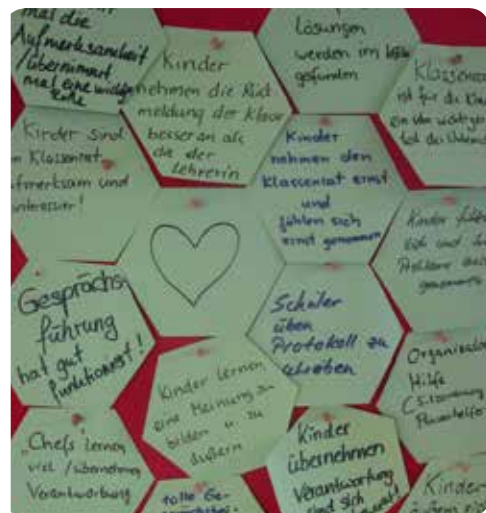 mal die
Aufmerksamkeit
/übernimmt
mal eine wichtige
Rolle
Kinder
nehmen die Rück
meldung der Klasse
besser an als
die der
Lehrerin
Lösungen
werden im
gefunden
Klassenrat
ist für die
ein
Kinder sind
Klassenrat
aufmerksam und
interessiert!
Kinder
nehmen den
Klassenrat ernst
und
fühlen sich
ernst genommen
Kinder fühlen
sich und ihre
Probleme ernst
genommen
Gesprächs-
führung
hat gut
funktioniert!
Schüler
üben
Protokoll zu
schreiben
Organisator
Hilfe
Kinder lernen
eine Meinung zu
bilden u. zu
äußern
"Chefs" lernen
viel /übernehmen
Verantwortung
tolle Ge-
Kinder
übernehmen
Verantwortung
und sich
Kinder